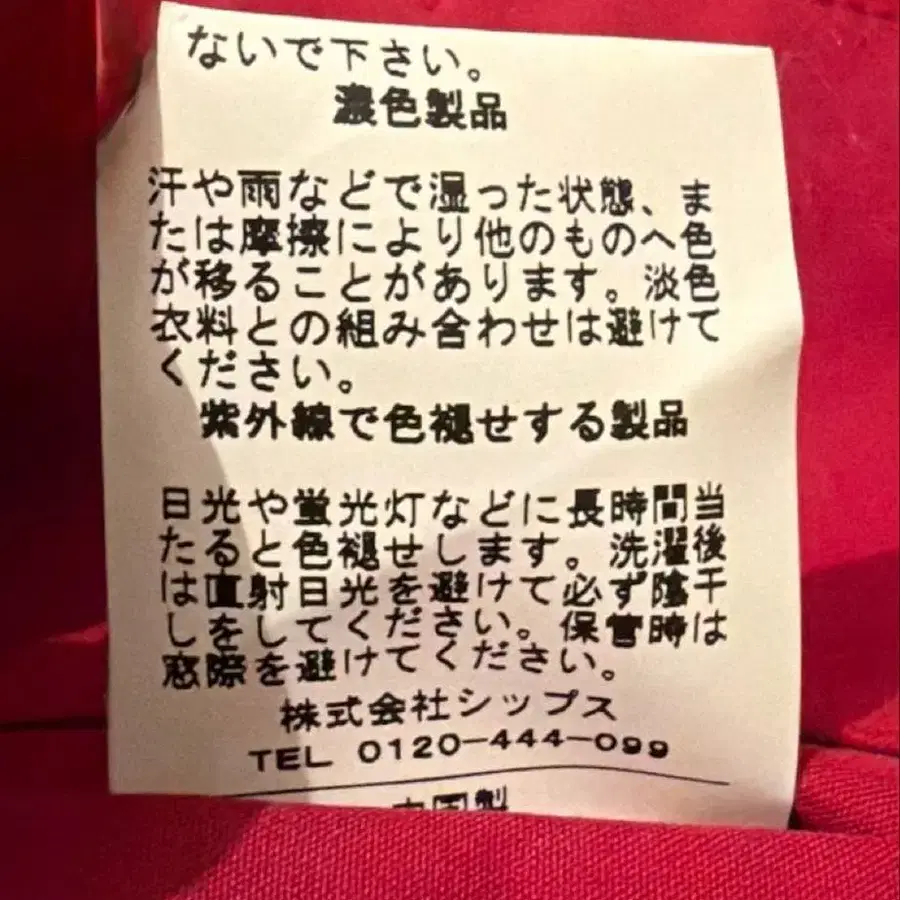 ないで下さい。
濃色製品
汗や雨などで湿った状態、ま
たは摩擦により他のものへ色
が移ることがあります。淡色
衣料との組み合わせは避けて
ください。
紫外線で色褪せする製品
日光や蛍光灯などに長時間当
たると色褪せします。洗濯後
は直射日光を避けて必ず陰干
しをしてください。保管時は
窓際を避けてください。
株式会社シップス
TEL 0120-444-099
中国製